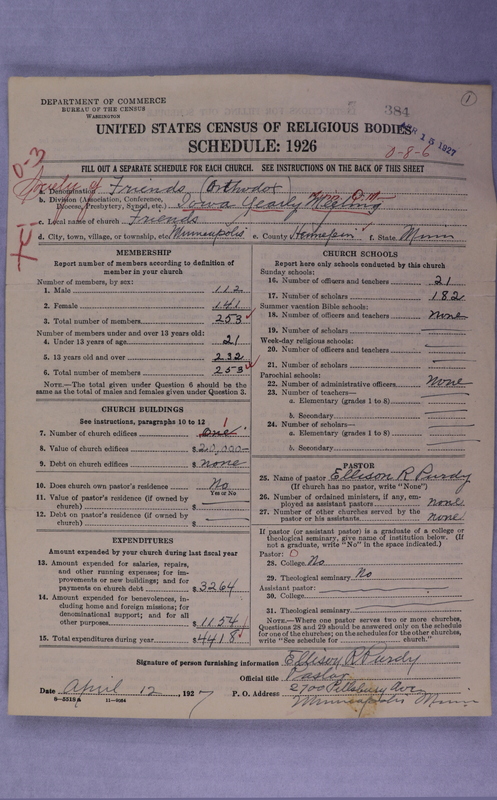 1
DEPARTMENT OF COMMERCE
BUREAU OF THE CENSUS
WASHINGTON
384
APR 13 1927
UNITED STATES CENSUS OF RELIGIOUS BODIES
SCHEDULE: 1926
0-3
0-8-6
FILL OUT A SEPARATE SCHEDULE FOR EACH CHURCH. SEE INSTRUCTIONS ON THE BACK OF THIS SHEET
Society of
a. Denomination Friends (Orthodox)
b. Division (Association, Conference, Diocese, Presbytery, Synod, etc.) Iowa Yearly Meeting
c. Local name of church Friends
d. City, town, village, or township, etc. Minneapolis e. County Hennepin f. State Minn
MEMBERSHIP
Report number of members according to definition of
member in your church
Number of members, by sex:
1. Male 112
2. Female 141
3. Total number of members 253
Number of members under and over 13 years old:
4. Under 13 years of age 21
5. 13 years old and over 232
6. Total number of members 253
NOTE.—The total given under Question 6 should be the
same as the total of males and females given under Question 3.
CHURCH BUILDINGS
See instructions, paragraphs 10 to 12
7. Number of church edifices one 1
8. Value of church edifices $20,000
9. Debt on church edifices $ none
10. Does church own pastor's residence? No
Yes or No
11. Value of pastor's residence (if owned by
church) $
12. Debt on pastor's residence (if owned by
church) $
EXPENDITURES
Amount expended by your church during last fiscal year
13. Amount expended for salaries, repairs,
and other running expenses; for im-
provements or new buildings; and for
payments on church debt $3264
14. Amount expended for benevolences, in-
cluding home and foreign missions; for
denominational support; and for all
other purposes $1154
15. Total expenditures during year $4418
CHURCH SCHOOLS
Report here only schools conducted by this church
Sunday schools:
16. Number of officers and teachers 21
17. Number of scholars 182
Summer vacation Bible schools:
18. Number of officers and teachers none
19. Number of scholars
Week-day religious schools:
20. Number of officers and teachers
21. Number of scholars
Parochial schools:
22. Number of administrative officers none
23. Number of teachers—
a. Elementary (grades 1 to 8)
b. Secondary
24. Number of scholars—
a. Elementary (grades 1 to 8)
b. Secondary
PASTOR
25. Name of pastor Ellison R Purdy
(If church has no pastor, write "None")
26. Number of ordained ministers, if any, em-
ployed as assistant pastors none
27. Number of other churches served by the
pastor or his assistants none
If pastor (or assistant pastor) is a graduate of a college or
theological seminary, give name of institution below. (If
not a graduate, write "No" in the space indicated.)
Pastor: 0
28. College No
29. Theological seminary No
Assistant pastor:
30. College
31. Theological seminary
NOTE.—Where one pastor serves two or more churches,
Questions 28 and 29 should be answered only on the schedule
for one of the churches; on the schedules for the other churches,
write "See schedule for church."
Signature of person furnishing information Ellison R Purdy
Official title Pastor
Date April 12, 1927
P. O. Address 2700 Pillsbury Ave
Minneapolis Minn
8—5515a 11—9064